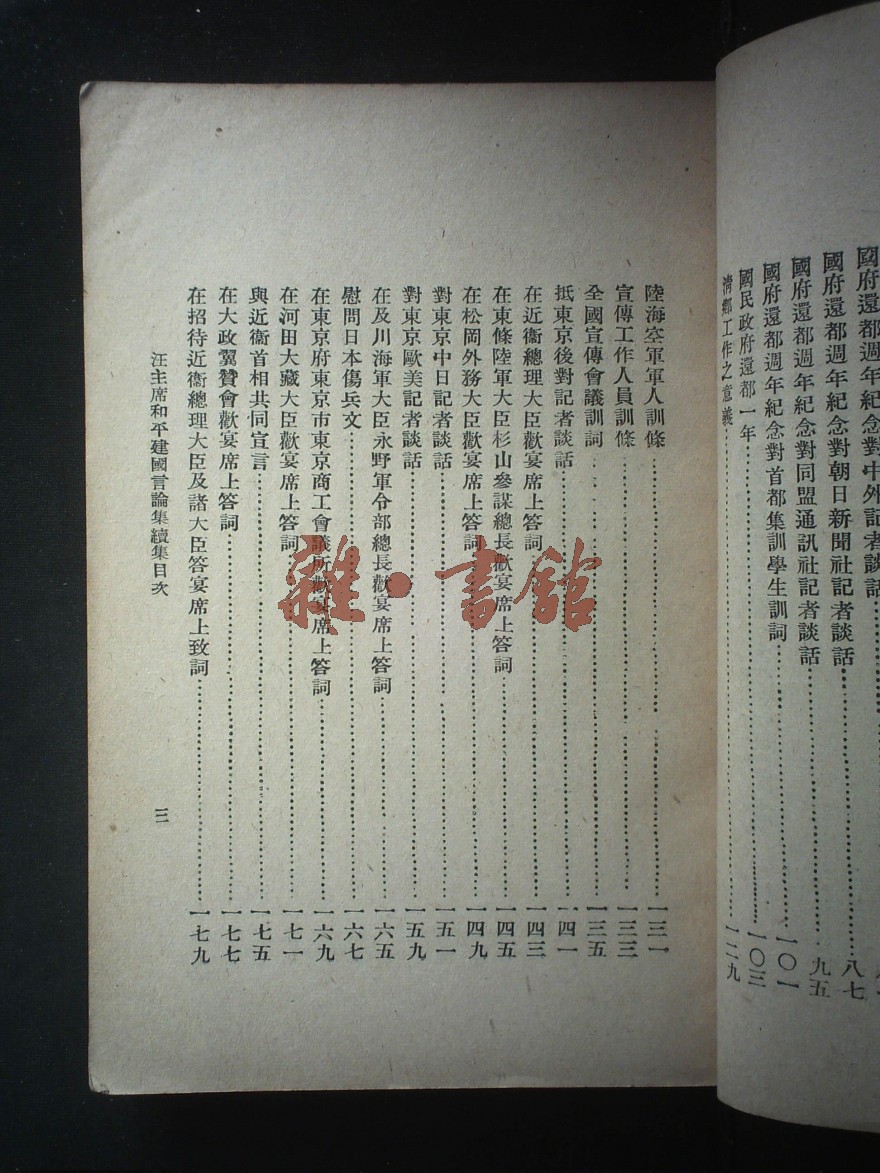 國府還都週年紀念對中外記者談話
國府還都週年紀念對朝日新聞社記者談話……八七
國府還都週年紀念對同盟通訊社記者談話……九五
國府還都週年紀念對首都集訓學生訓詞……一〇一
國民政府還都一年……一〇三
清鄉工作之意義……一二九
陸海空軍軍人訓條……一三一
宣傳工作人員訓條……一三三
全國宣傳會議訓詞……一三五
抵東京後對記者談話……一四一
在近衞總理大臣歡宴席上答詞……一四三
在東條陸軍大臣杉山參謀總長歡宴席上答詞……一四五
在松岡外務大臣歡宴席上答詞……一四九
對東京中日記者談話……一五一
對東京歐美記者談話……一五九
在及川海軍大臣永野軍令部總長歡宴席上答詞……一六五
慰問日本傷兵文……一六七
在東京府東京市東京商工會議所歡宴席上答詞……一六九
在河田大藏大臣歡宴席上答詞……一七一
與近衞首相共同宣言……一七五
在大政翼贊會歡宴席上答詞……一七七
在招待近衞總理大臣及諸大臣答宴席上致詞……一七九
汪主席和平建國言論集續集目次
三
雜·書館